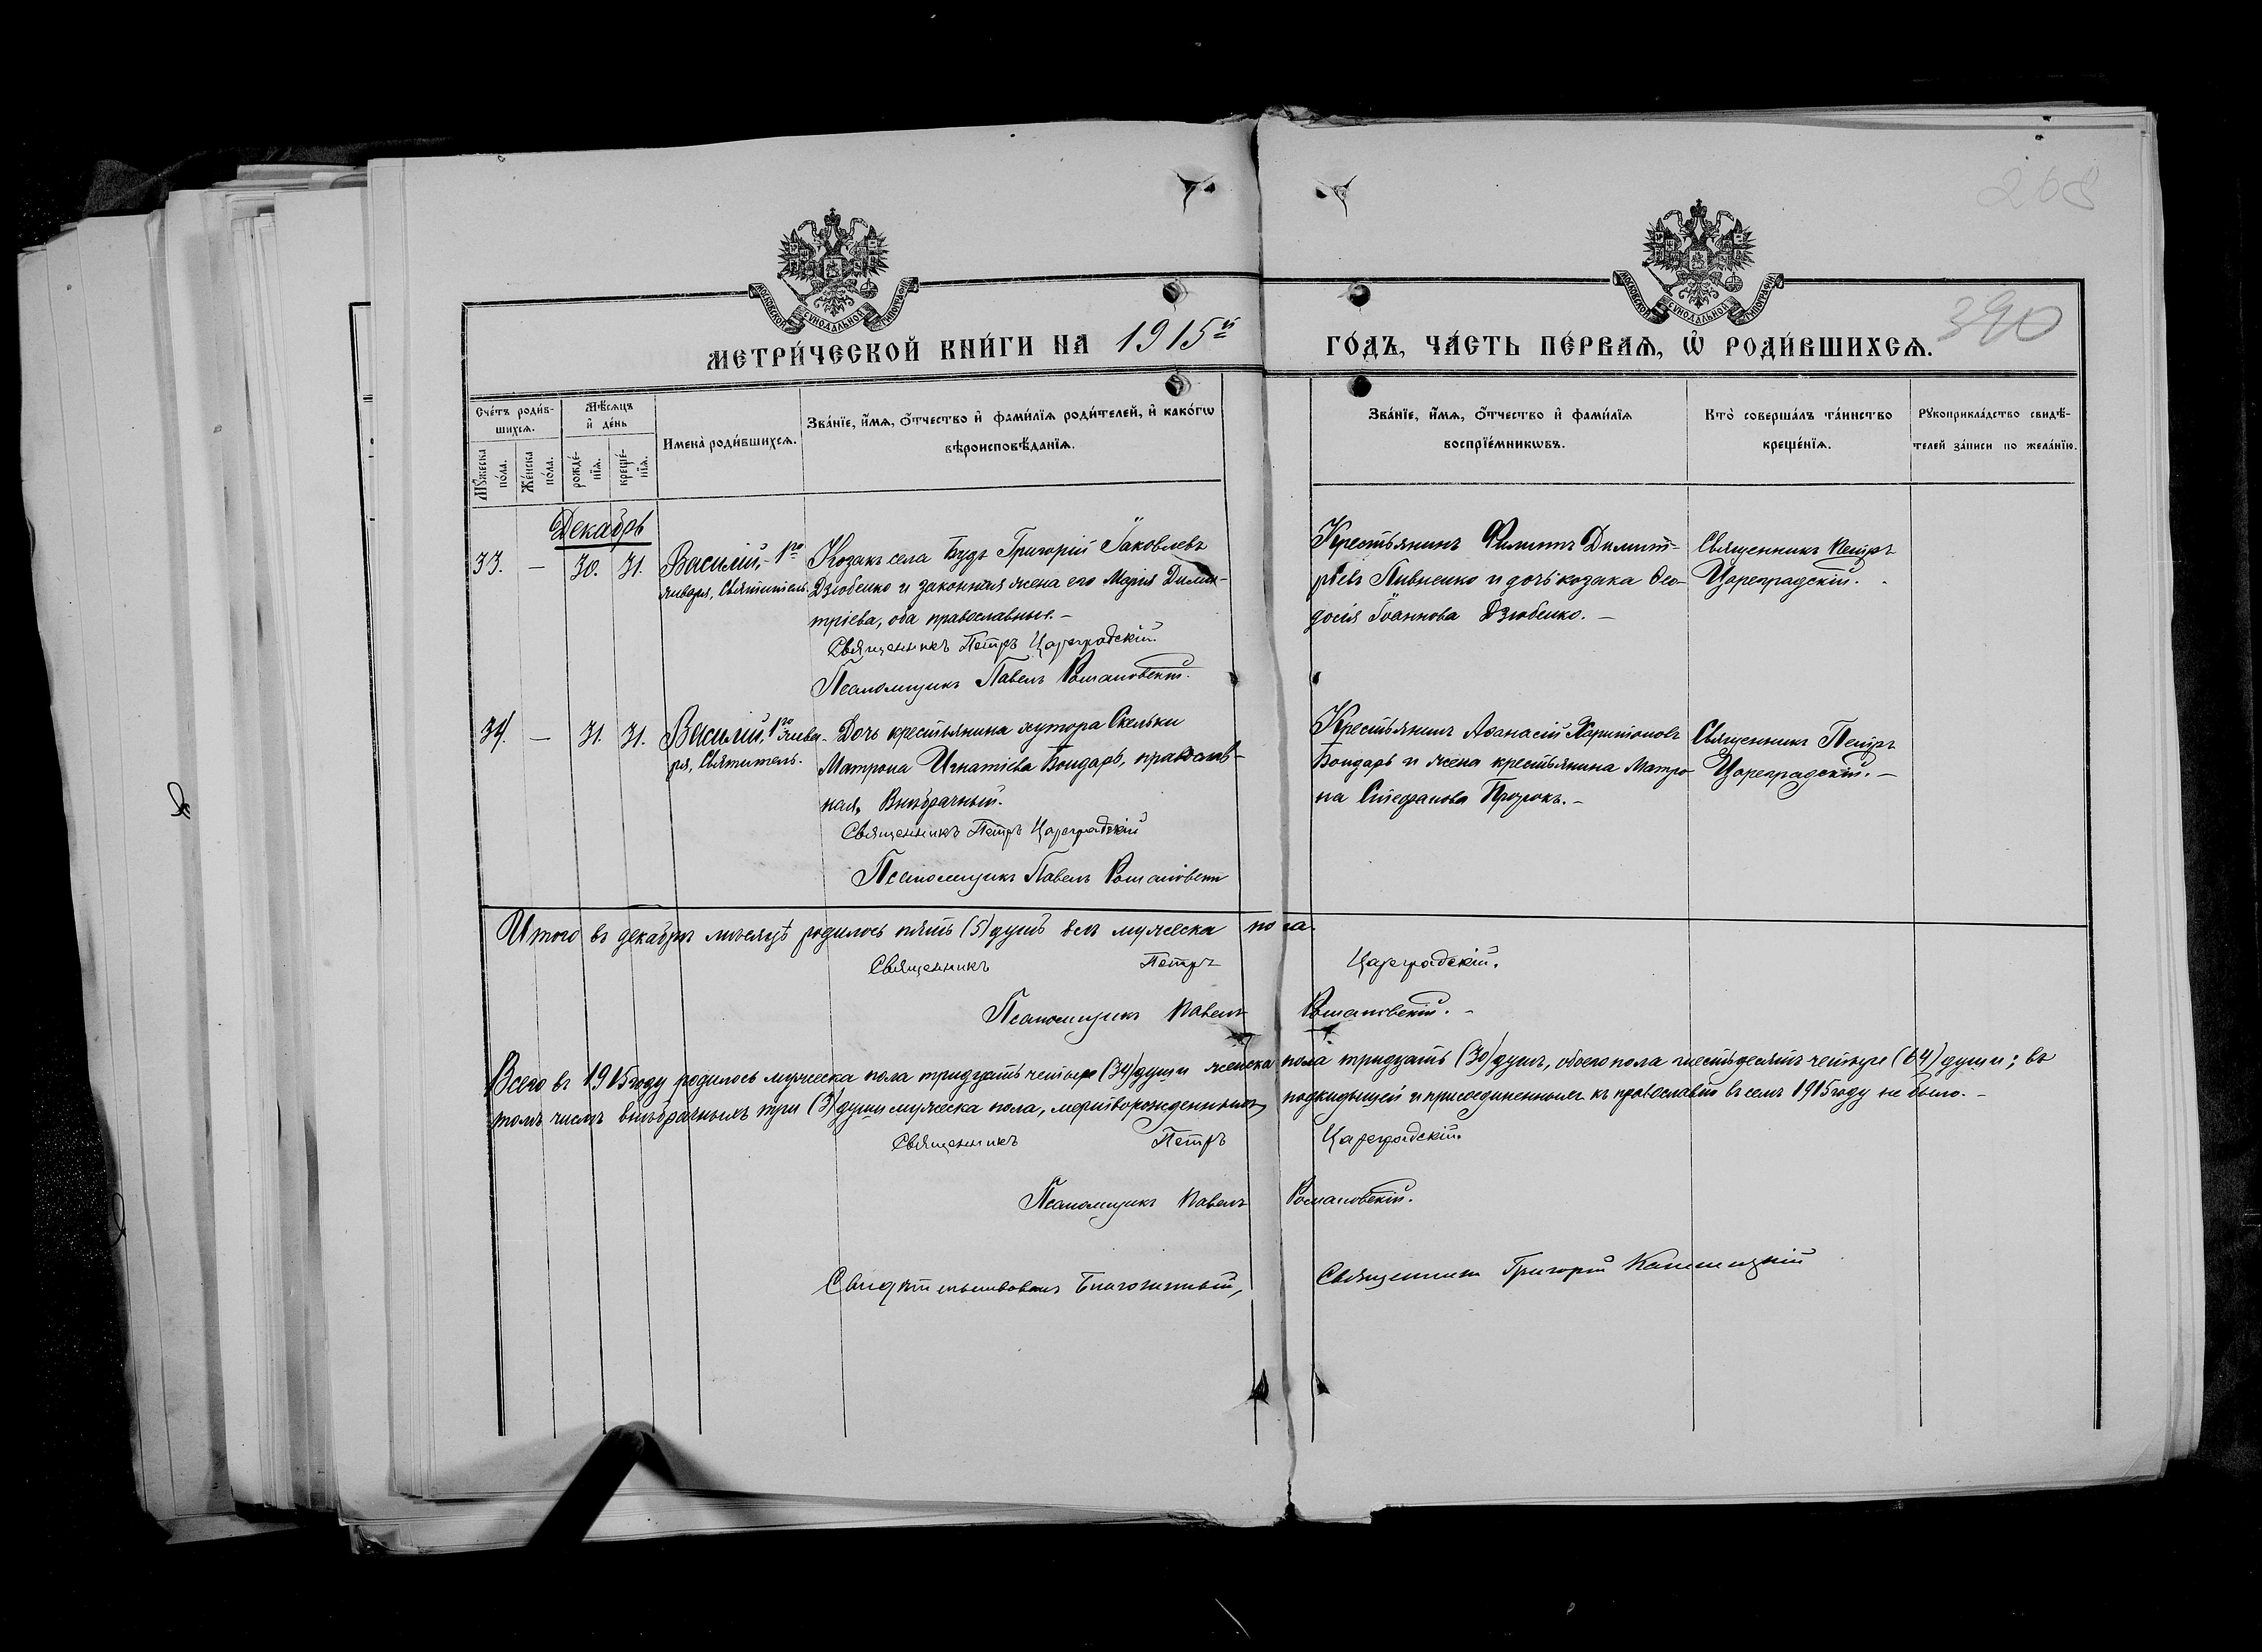 268
390
МОСКОВСКОЙ СѴНОДАЛЬНОЙ ТИПОГРАФІИ
МОСКОВСКОЙ СѴНОДАЛЬНОЙ ТИПОГРАФІИ
МЕТРИ́ЧЕСКОЙ КНИ́ГИ НА 1915й ГО́ДЪ, ЧА́СТЬ ПЕ́РВАѦ, Ѡ҆ РОДИ́ВШИХСѦ.
Сче́тъ роди́в-
шихсѧ.
Мѣ́сѧцъ
и҆ де́нь
Имена̀ роди́вшихсѧ.
Зва́нїе, и҆́мѧ, ѻ҆́тчество и҆ фами́лїѧ роди́телей, и҆ како́гѡ
вѣроисповѣ́данїѧ.
Зва́нїе, и҆́мѧ, ѻ҆́тчество и҆ фами́лїѧ
воспрїе́мникѡвъ.
Кто̀ соверша́лъ та́инство
креще́нїѧ.
Рꙋкоприкла́дство свидѣ́-
телей за́писи по жела́нїю.
Мꙋ́жеска
по́ла.
Же́нска
по́ла.
рожде́-
нїѧ.
креще́-
нїѧ.
Декабрь
33. — 30. 31. Василій, - 1го
января, Святитель.
Козакъ села Будъ Григорій Іаковлевъ
Дзюбенко и законная жена его Марія Дими-
тріева, оба православные. —
Священникъ Петръ Цареградскій.
Псаломщикъ Павелъ Романовскій.
Крестьянинъ Филиппъ Димит-
ріевъ Пивненко и дочь козака Ѳео-
досія Іоаннова Дзюбенко. —
Священникъ Петръ
Цареградскій.
34. — 31. 31. Василій, 1го янва-
ря, Святитель.
Дочь крестьянина хутора Скельки
Матрона Игнатіева Бондарь, православ-
ная. Внѣбрачный.
Священникъ Петръ Цареградскій
Псаломщикъ Павелъ Романовскій
Крестьянинъ Аѳанасій Харитоновъ
Бондарь и жена крестьянина Матро-
на Стефанова Пророкъ. —
Священникъ Петръ
Цареградскій. —
Итого въ декабрѣ мѣсяцѣ родилось пять (5) душъ всѣ мужеска пола.
Священникъ Петръ Цареградскій.
Псаломщикъ Павелъ Романовскій. —
Всего въ 1915 году родилось мужеска пола тридцать четыре (34) души женска пола тридцать (30) душъ, обоего пола шестьдесятъ четыре (64) души; въ
томъ числѣ внѣбрачныхъ три (3) души мужеска пола, мертворожденныхъ, подкидышей и присоединенныхъ къ православію въ семъ 1915 году не было. —
Священникъ Петръ Цареградскій.
Псаломщикъ Павелъ Романовскій.
Свидѣтельствовалъ Благочинный, Священникъ Григорій